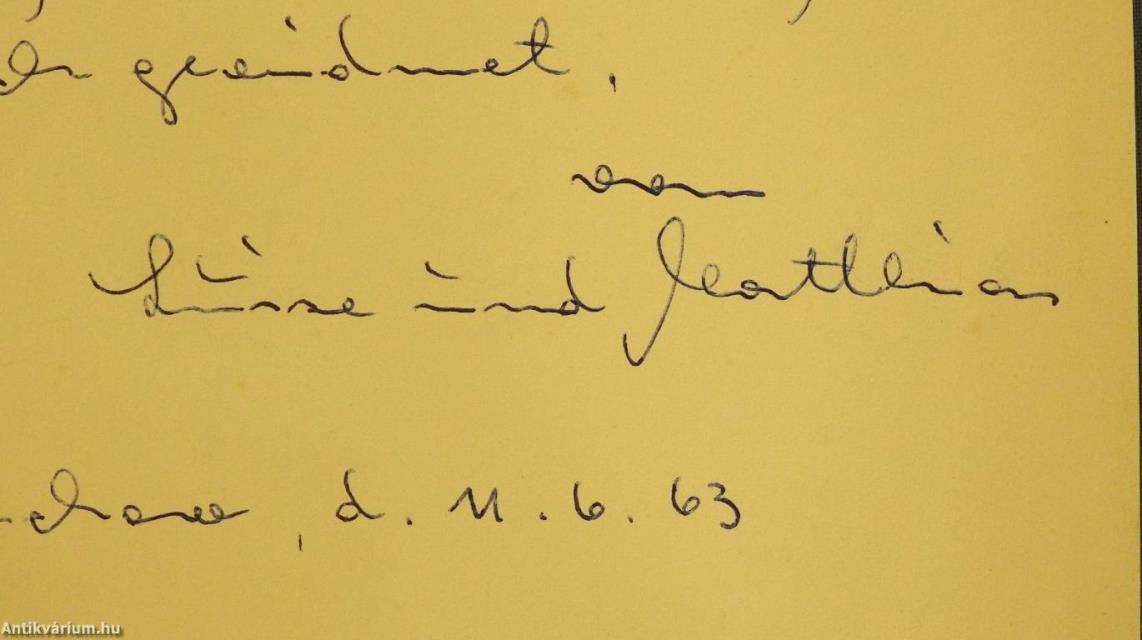 gewidmet.
von
und Matthias
d. 11.6.63
Antikvárium.hu